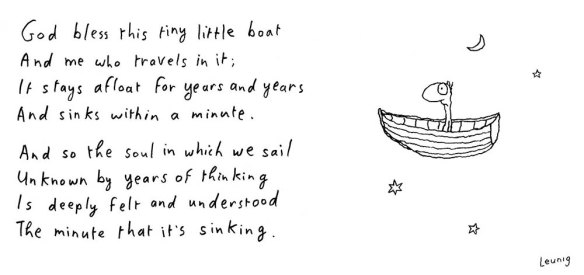 God bless this tiny little boat
And me who travels in it;
It stays afloat for years and years
And sinks within a minute.
And so the soul in which we sail
Unknown by years of thinking
Is deeply felt and understood
The minute that it's sinking.
Leunig